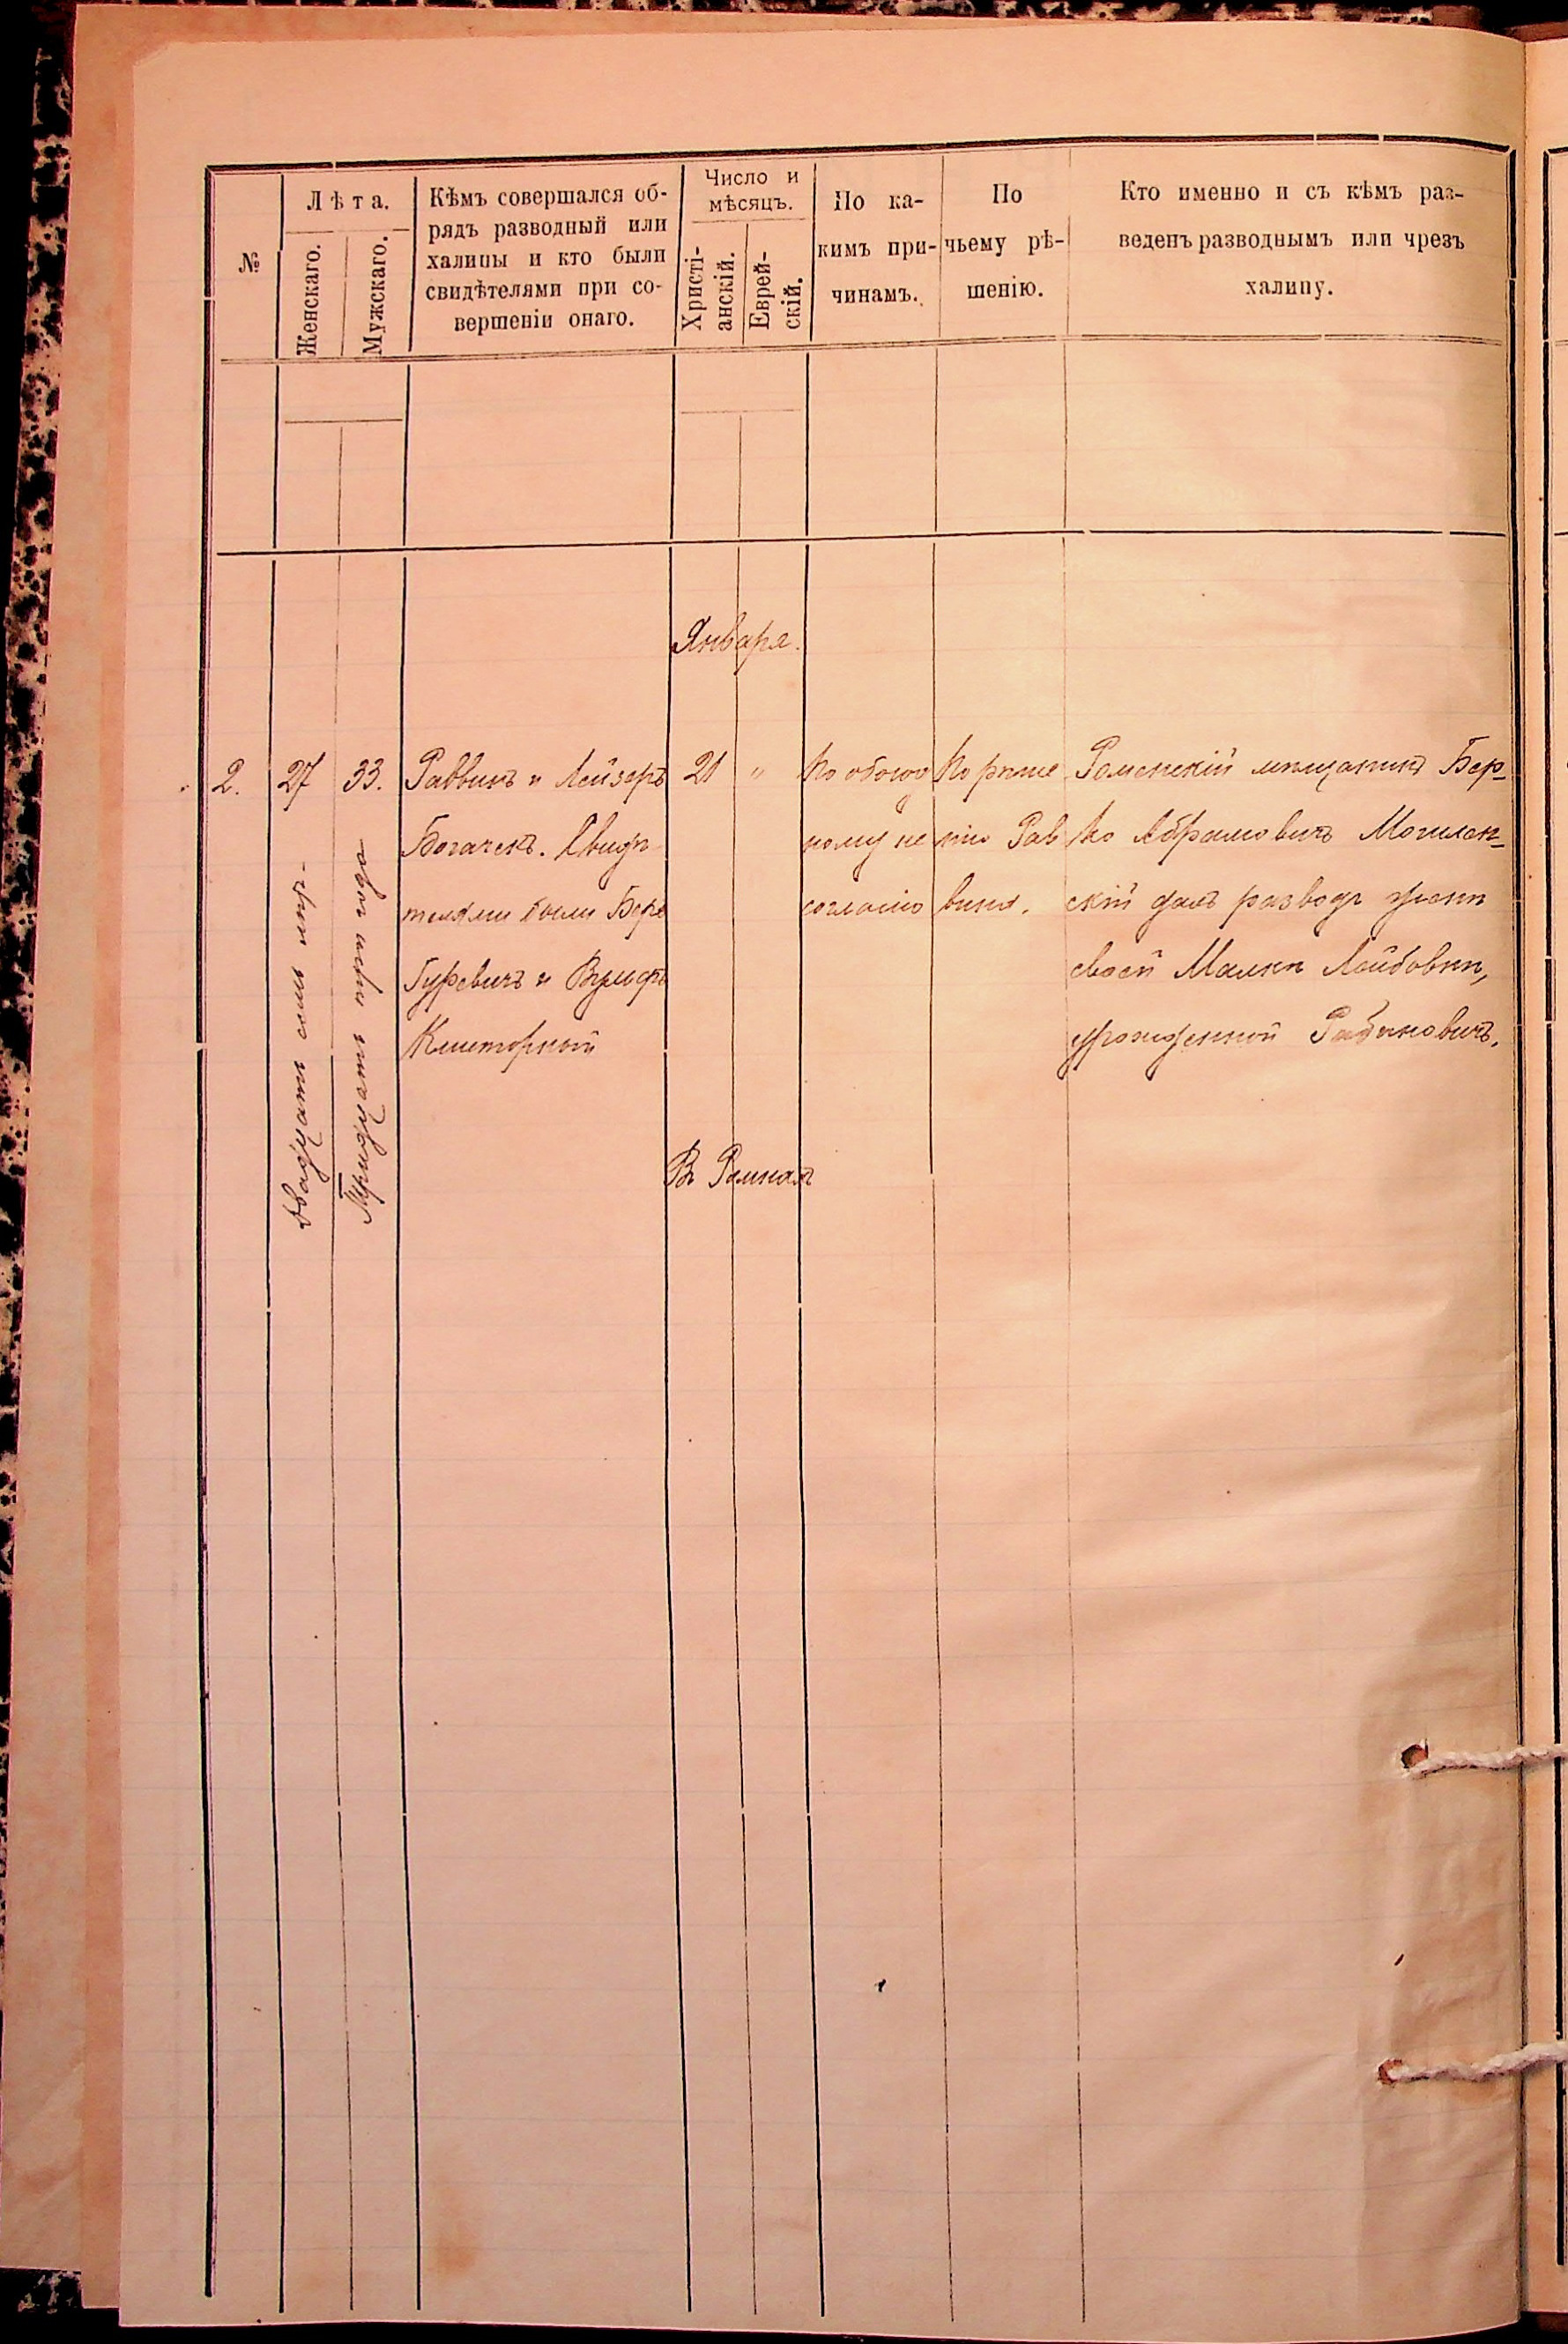 №
Лѣта.
Женскаго.
Мужскаго.
Кѣмъ совершался об-
рядъ разводный или
халицы и кто были
свидѣтелями при со-
вершеніи онаго.
Число и
мѣсяцъ.
Христі-
анскій.
Еврей-
скій.
По ка-
кимъ при-
чинамъ.
По
чьему рѣ-
шенію.
Кто именно и съ кѣмъ раз-
веденъ разводнымъ или чрезъ
халицу.
Января.
2.
27
Двадцать семь лѣт-
33.
Тридцать три года
Раввинъ и Лейзеръ
Богачекъ. Свидѣ
телями были Беръ
Гуревичъ и Вульфъ
21 "
Въ Ромнахъ
По обоюд
ному не
согласію
По рѣше
нію Рав
вина.
Роменскій мѣщанинъ Бер-
ко Абрамовичъ Могилен-
скій далъ разводъ женѣ
своей Малкѣ Лейбовнѣ,
урожденной Рабиновичъ.